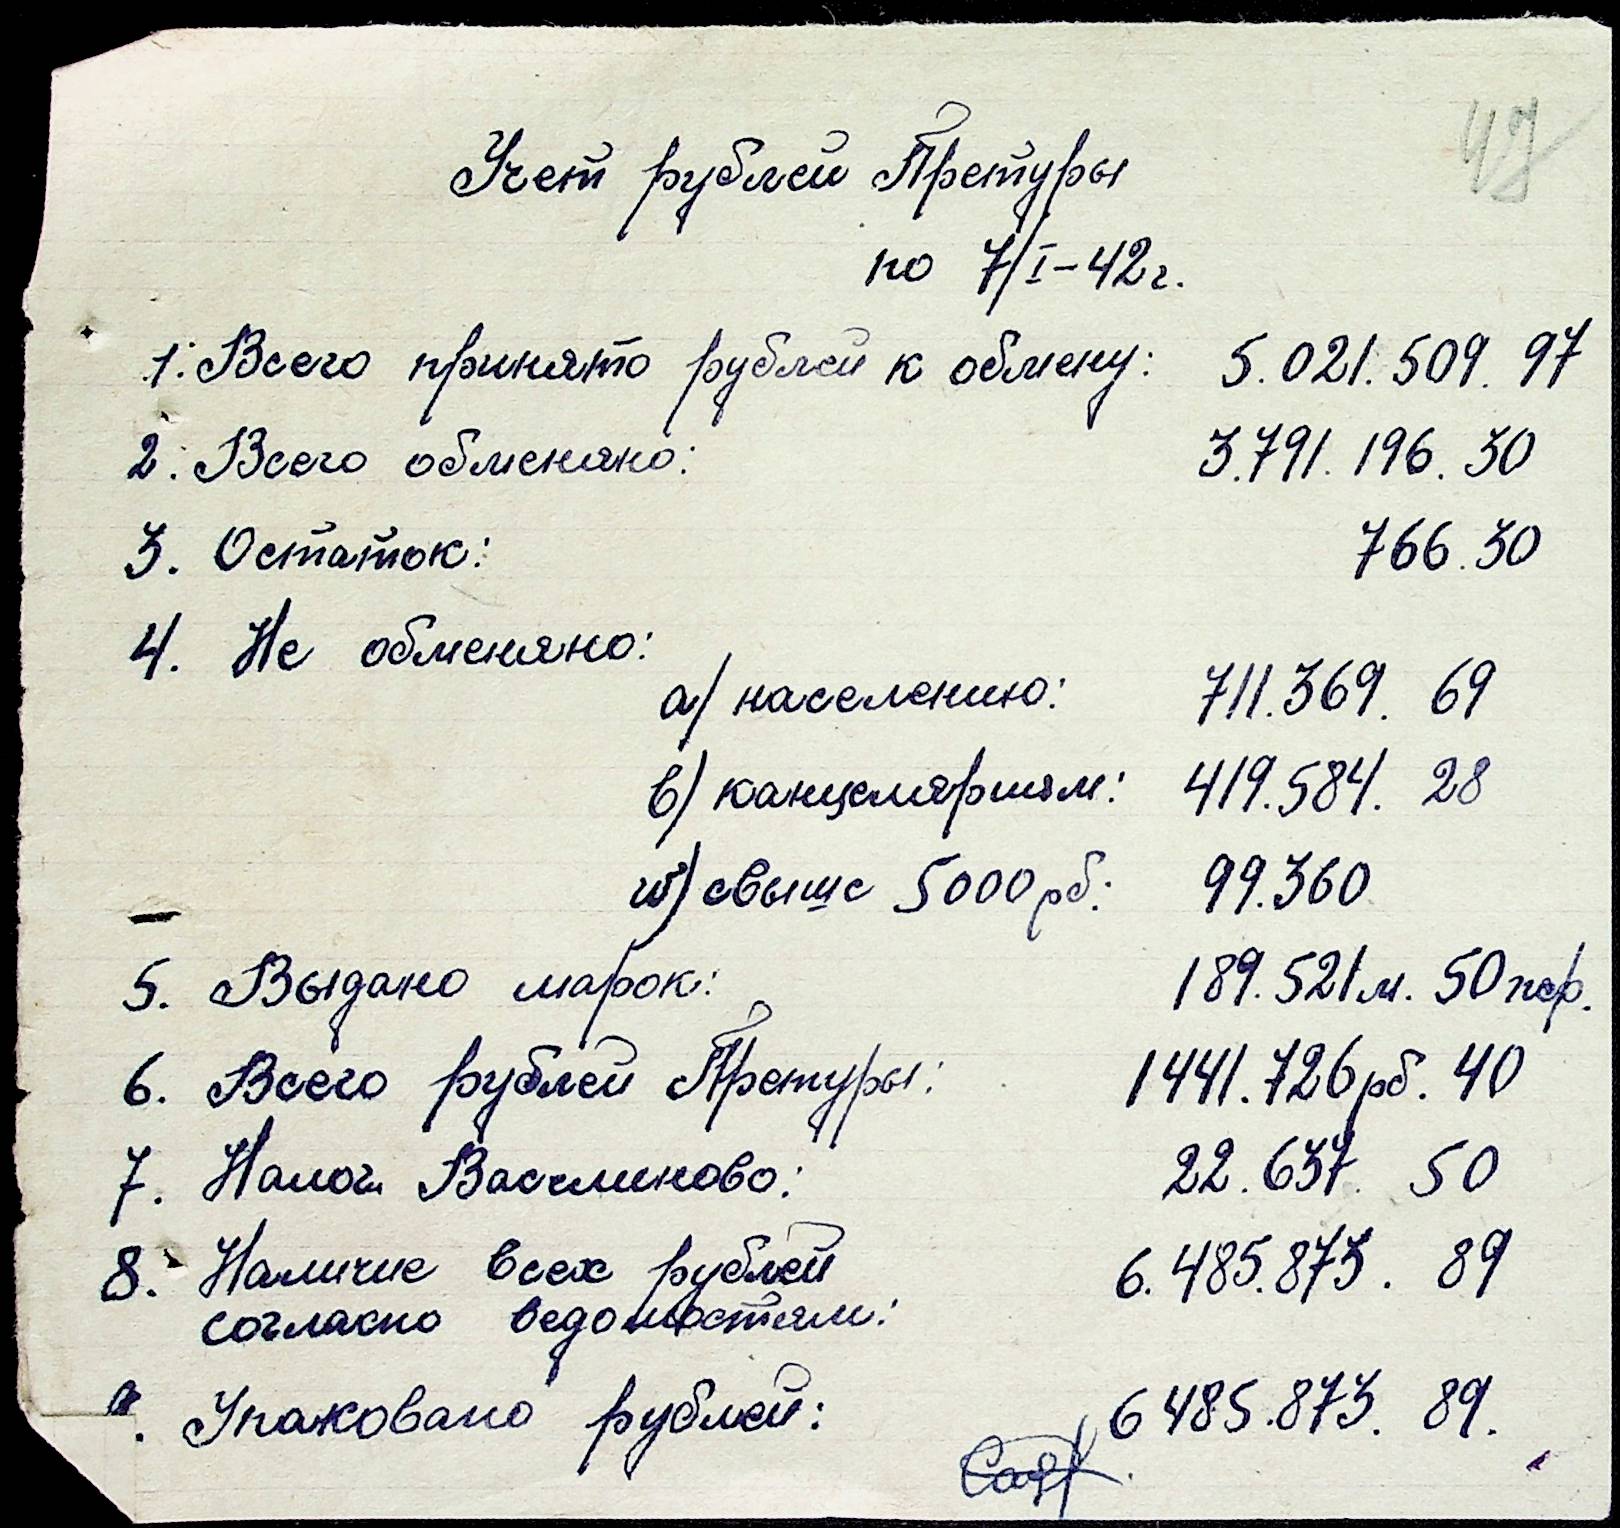 47
Учет рублей Претуры
по 7/I-42г.
1. Всего принято рублей к обмену: 5.021.509. 97
2. Всего обменяно: 3.791.196.30
3. Остаток: 766.30
4. Не обменяно:
а/ населению: 711.369. 69
в) канцеляриям: 419.584. 28
свыше 5000 рб: 99.360
5. Выдано марок: 189.521м. 50 пф.
6. Всего рублей Претуры: 1441.726рб. 40
7. Налог Васчлиново: 22.637. 50
8. Наличие всех рублей 6.485.873. 89
согласно ведомостям:
9. Упаковано рублей: 6485.873. 89.